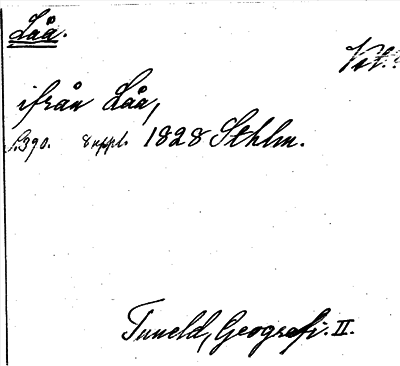 Låa.
Vet.
ifrån Låa,
s.390. 8 uppl. 1828 Sthlm.
Tuneld, Geografi. II.